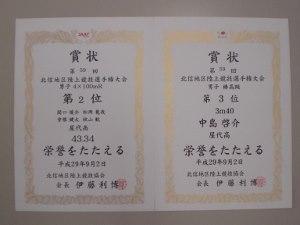 賞状
第59回
北信地区陸上競技選手権大会
男子 4×100mR
第2位
屋代高
43.34
栄誉をたたえる
平成29年9月2日
北信地区陸上競技協会
会長 伊藤利博
賞状
第59回
北信地区陸上競技選手権大会
男子 棒高跳
第3位
3m40
中島啓介
屋代高
栄誉をたたえる
平成29年9月2日
北信地区陸上競技協会
会長 伊藤利博